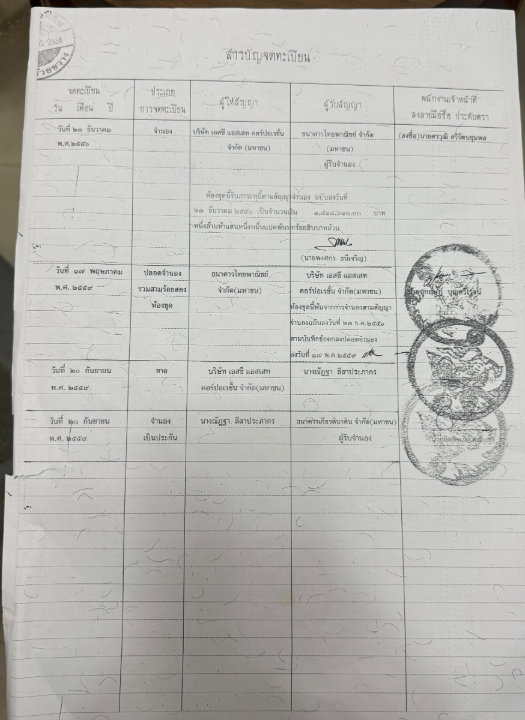 สารบัญจดทะเบียน
จดทะเบียน
วัน เดือน ปี
ประเภท
การจดทะเบียน
ผู้ให้สัญญา
ผู้รับสัญญา
พนักงานเจ้าหน้าที่
ลงลายมือชื่อ ประทับตรา
วันที่ ๒๓ ธันวาคม
พ.ศ.๒๕๕๖
จำนอง
บริษัท เอสซี แอสเสท คอร์ปอเรชั่น
จำกัด (มหาชน)
ธนาคารไทยพาณิชย์ จำกัด
(มหาชน)
ผู้รับจำนอง
ห้องชุดนี้รับภาระหนี้ตามสัญญาจำนอง ฉบับลงวันที่
๒๓ ธันวาคม ๒๕๕๖ เป็นจำนวนเงิน บาท
วันที่ ๑๗ พฤษภาคม
พ.ศ. ๒๕๕๙
ปลอดจำนอง
รวมสามร้อยสอง
ห้องชุด
ธนาคารไทยพาณิชย์
จำกัด(มหาชน)
บริษัท เอสซี แอสเสท
คอร์ปอเรชั่น จำกัด(มหาชน)
ห้องชุดนี้พ้นจากการจำนองตามสัญญา
จำนองฉบับลงวันที่ ๒๓ ธ.ค.๒๕๕๖
ตามบันทึกข้อตกลงปลอดจำนอง
ลงวันที่ ๑๗ พ.ค. ๒๕๕๙
วันที่ ๒๐ กันยายน
พ.ศ. ๒๕๕๙
ขาย
บริษัท เอสซี แอสเสท
คอร์ปอเรชั่น จำกัด(มหาชน)
นางณัฏฐา ลีลาประภากร
วันที่ ๒๐ กันยายน
พ.ศ. ๒๕๕๙
จำนอง
เป็นประกัน
นางณัฏฐา ลีลาประภากร
ธนาคารเกียรตินาคิน จำกัด(มหาชน)
ผู้รับจำนอง